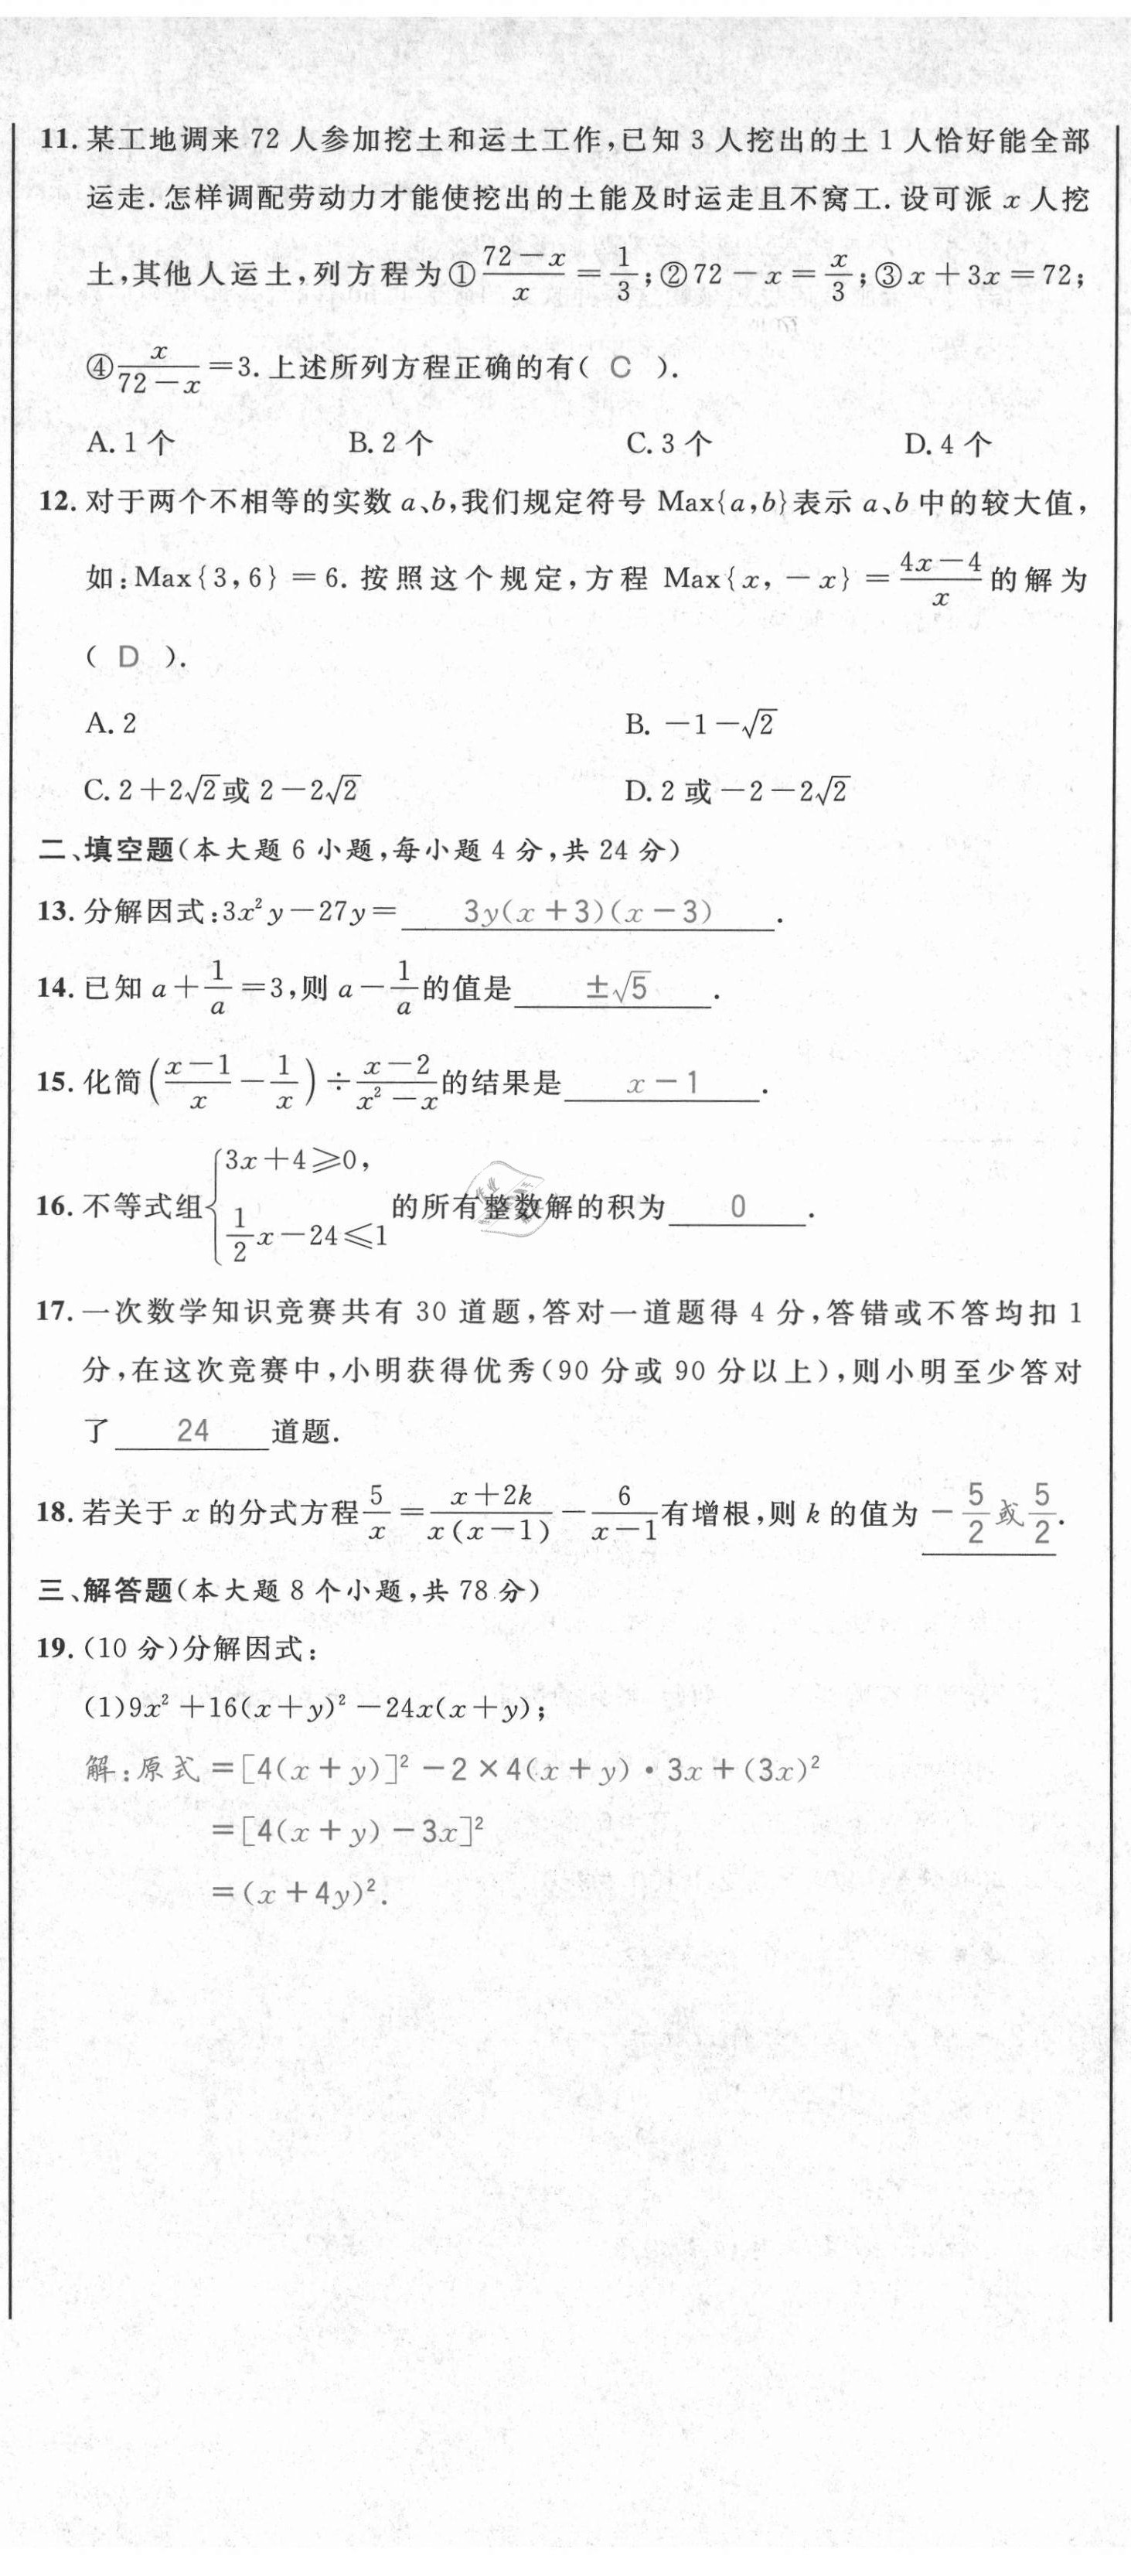 11. 某工地调来 72 人参加挖土和运土工作,已知 3 人挖出的土 1 人恰好能全部
运走. 怎样调配劳动力才能使挖出的土能及时运走且不窝工. 设可派 x 人挖
土,其他人运土,列方程为①\frac{72-x}{x}=\frac{1}{3};②72-x=\frac{x}{3};③x+3x=72;
④\frac{x}{72-x}=3. 上述所列方程正确的有( C ).
A. 1 个 B. 2 个 C. 3 个 D. 4 个
12. 对于两个不相等的实数 a、b,我们规定符号 Max{a,b}表示 a、b 中的较大值,
如:Max{3,6}=6. 按照这个规定,方程 Max{x,-x}=\frac{4x-4}{x}的解为
( D ).
A. 2 B. -1-√2
C. 2+2√2或 2-2√2 D. 2 或-2-2√2
二、填空题(本大题 6 小题,每小题 4 分,共 24 分)
13. 分解因式:3x²y-27y= 3y(x+3)(x-3) .
14. 已知 a+\frac{1}{a}=3,则 a-\frac{1}{a}的值是 ±√5 .
15. 化简(\frac{x-1}{x}-\frac{1}{x})÷\frac{x-2}{x²-x}的结果是 x-1 .
16. 不等式组{3x+4≥0, \frac{1}{2}x-24≤1 的所有整数解的积为 0 .
17. 一次数学知识竞赛共有 30 道题,答对一道题得 4 分,答错或不答均扣 1
分,在这次竞赛中,小明获得优秀(90 分或 90 分以上),则小明至少答对
了 24 道题.
18. 若关于 x 的分式方程\frac{5}{x}=\frac{x+2k}{x(x-1)}-\frac{6}{x-1}有增根,则 k 的值为 -\frac{5}{2}或\frac{5}{2}.
三、解答题(本大题 8 个小题,共 78 分)
19. (10 分)分解因式:
(1)9x²+16(x+y)²-24x(x+y);
解:原式=[4(x+y)]²-2×4(x+y)·3x+(3x)²
=[4(x+y)-3x]²
=(x+4y)².